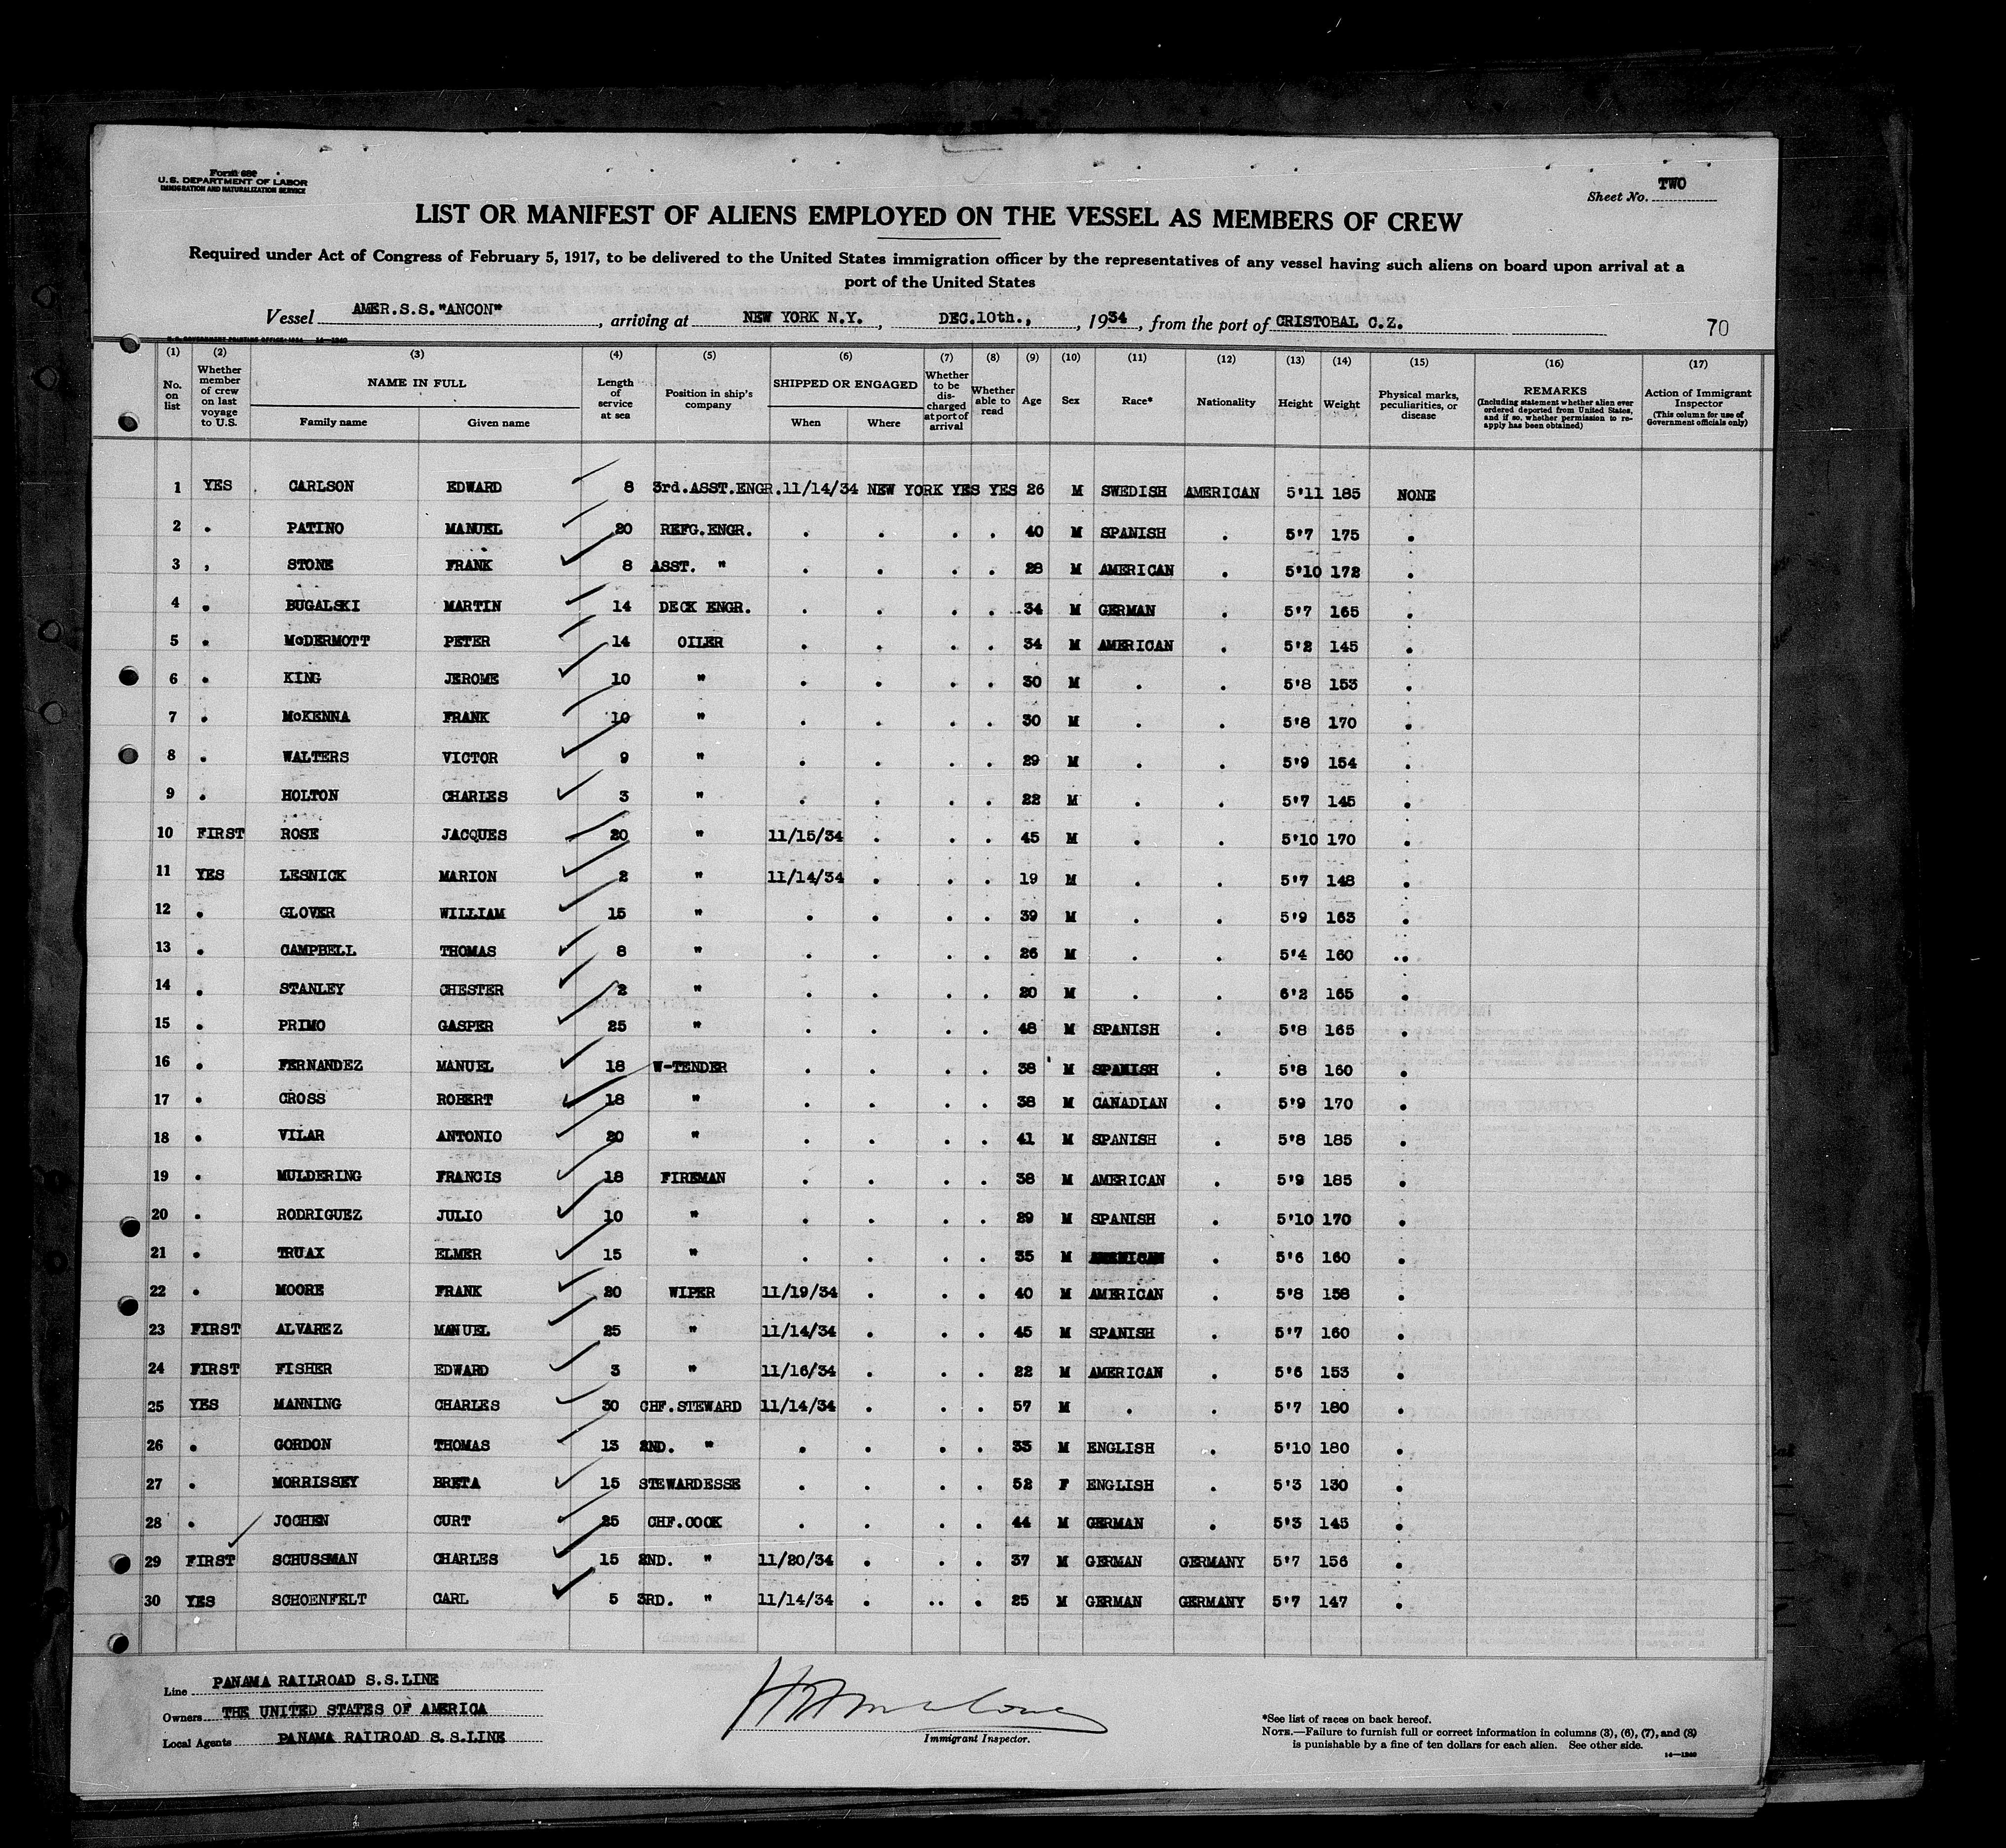 Form 689
U. S. DEPARTMENT OF LABOR
IMMIGRATION AND NATURALIZATION SERVICE
Sheet No. TWO
LIST OR MANIFEST OF ALIENS EMPLOYED ON THE VESSEL AS MEMBERS OF CREW
Required under Act of Congress of February 5, 1917, to be delivered to the United States immigration officer by the representatives of any vessel having such aliens on board upon arrival at a
port of the United States
Vessel AMER.S.S."ANCON", arriving at NEW YORK N.Y., DEC.10th., 1934, from the port of CRISTOBAL C.Z. 70
(1) (2) (3) (4) (5) (6) (7) (8) (9) (10) (11) (12) (13) (14) (15) (16) (17)
No. on list
Whether member of crew on last voyage to U.S.
NAME IN FULL
Family name Given name
Length of service at sea
Position in ship's company
SHIPPED OR ENGAGED
When Where
Whether to be discharged at port of arrival
Whether able to read
Age Sex Race* Nationality Height Weight
Physical marks, peculiarities, or disease
REMARKS
(Including statement whether alien ever ordered deported from United States, and if so, whether permission to re-apply has been obtained)
Action of Immigrant Inspector
(This column for use of Government officials only)
1 YES CARLSON EDWARD 8 3rd.ASST.ENGR. 11/14/34 NEW YORK YES YES 26 M SWEDISH AMERICAN 5'11 185 NONE
2 . PATINO MANUEL 20 REFG.ENGR. . . . . 40 M SPANISH . 5'7 175 .
3 , STONE FRANK 8 ASST. " . . . . 28 M AMERICAN . 5'10 172 .
4 . BUGALSKI MARTIN 14 DECK ENGR. . . . . 34 M GERMAN . 5'7 165 .
5 . McDERMOTT PETER 14 OILER . . . . 34 M AMERICAN . 5'2 145 .
6 . KING JEROME 10 " . . . . 30 M . . 5'8 153 .
7 . McKENNA FRANK 10 " . . . . 30 M . . 5'8 170 .
8 . WALTERS VICTOR 9 " . . . . 29 M . . 5'9 154 .
9 . HOLTON CHARLES 3 " . . . . 22 M . . 5'7 145 .
10 FIRST ROSE JACQUES 20 " 11/15/34 . . . 45 M . . 5'10 170 .
11 YES LESNICK MARION 2 " 11/14/34 . . . 19 M . . 5'7 148 .
12 . GLOVER WILLIAM 15 " . . . . 39 M . . 5'9 163 .
13 . CAMPBELL THOMAS 8 " . . . . 26 M . . 5'4 160 ..
14 . STANLEY CHESTER 2 " . . . . 20 M . . 6'2 165 .
15 . PRIMO GASPER 25 " . . . . 48 M SPANISH . 5'8 165 .
16 . FERNANDEZ MANUEL 18 W-TENDER . . . . 38 M SPANISH . 5'8 160 .
17 . CROSS ROBERT 18 " . . . . 38 M CANADIAN . 5'9 170 .
18 . VILAR ANTONIO 20 " . . . . 41 M SPANISH . 5'8 185 .
19 . MULDERING FRANCIS 18 FIREMAN . . . . 38 M AMERICAN . 5'9 185 .
20 . RODRIGUEZ JULIO 10 " . . . . 29 M SPANISH . 5'10 170 .
21 . TRUAX ELMER 15 " . . . . 35 M AMERICAN . 5'6 160 .
22 . MOORE FRANK 20 WIPER 11/19/34 . . . 40 M AMERICAN . 5'8 158 .
23 FIRST ALVAREZ MANUEL 25 " 11/14/34 . . . 45 M SPANISH . 5'7 160 .
24 FIRST FISHER EDWARD 3 " 11/16/34 . . . 22 M AMERICAN . 5'6 153 .
25 YES MANNING CHARLES 30 CHF.STEWARD 11/14/34 . . . 57 M . . 5'7 180 .
26 . GORDON THOMAS 13 2ND. " . . . . 33 M ENGLISH . 5'10 180 .
27 . MORRISSEY BRETA 15 STEWARDESSE . . . . 52 F ENGLISH . 5'3 130 .
28 . JOCHEN CURT 25 CHF.COOK . . . . 44 M GERMAN . 5'3 145 .
29 FIRST SCHUSSMAN CHARLES 15 2ND. " 11/20/34 . . . 37 M GERMAN GERMANY 5'7 156 .
30 YES SCHOENFELT CARL 5 3RD. " 11/14/34 . .. . 25 M GERMAN GERMANY 5'7 147 .
Line PANAMA RAILROAD S.S.LINE
Owners THE UNITED STATES OF AMERICA
Local Agents PANAMA RAILROAD S.S.LINE
Immigrant Inspector.
*See list of races on back hereof.
NOTE.—Failure to furnish full or correct information in columns (3), (6), (7), and (8)
is punishable by a fine of ten dollars for each alien. See other side.
14—1240